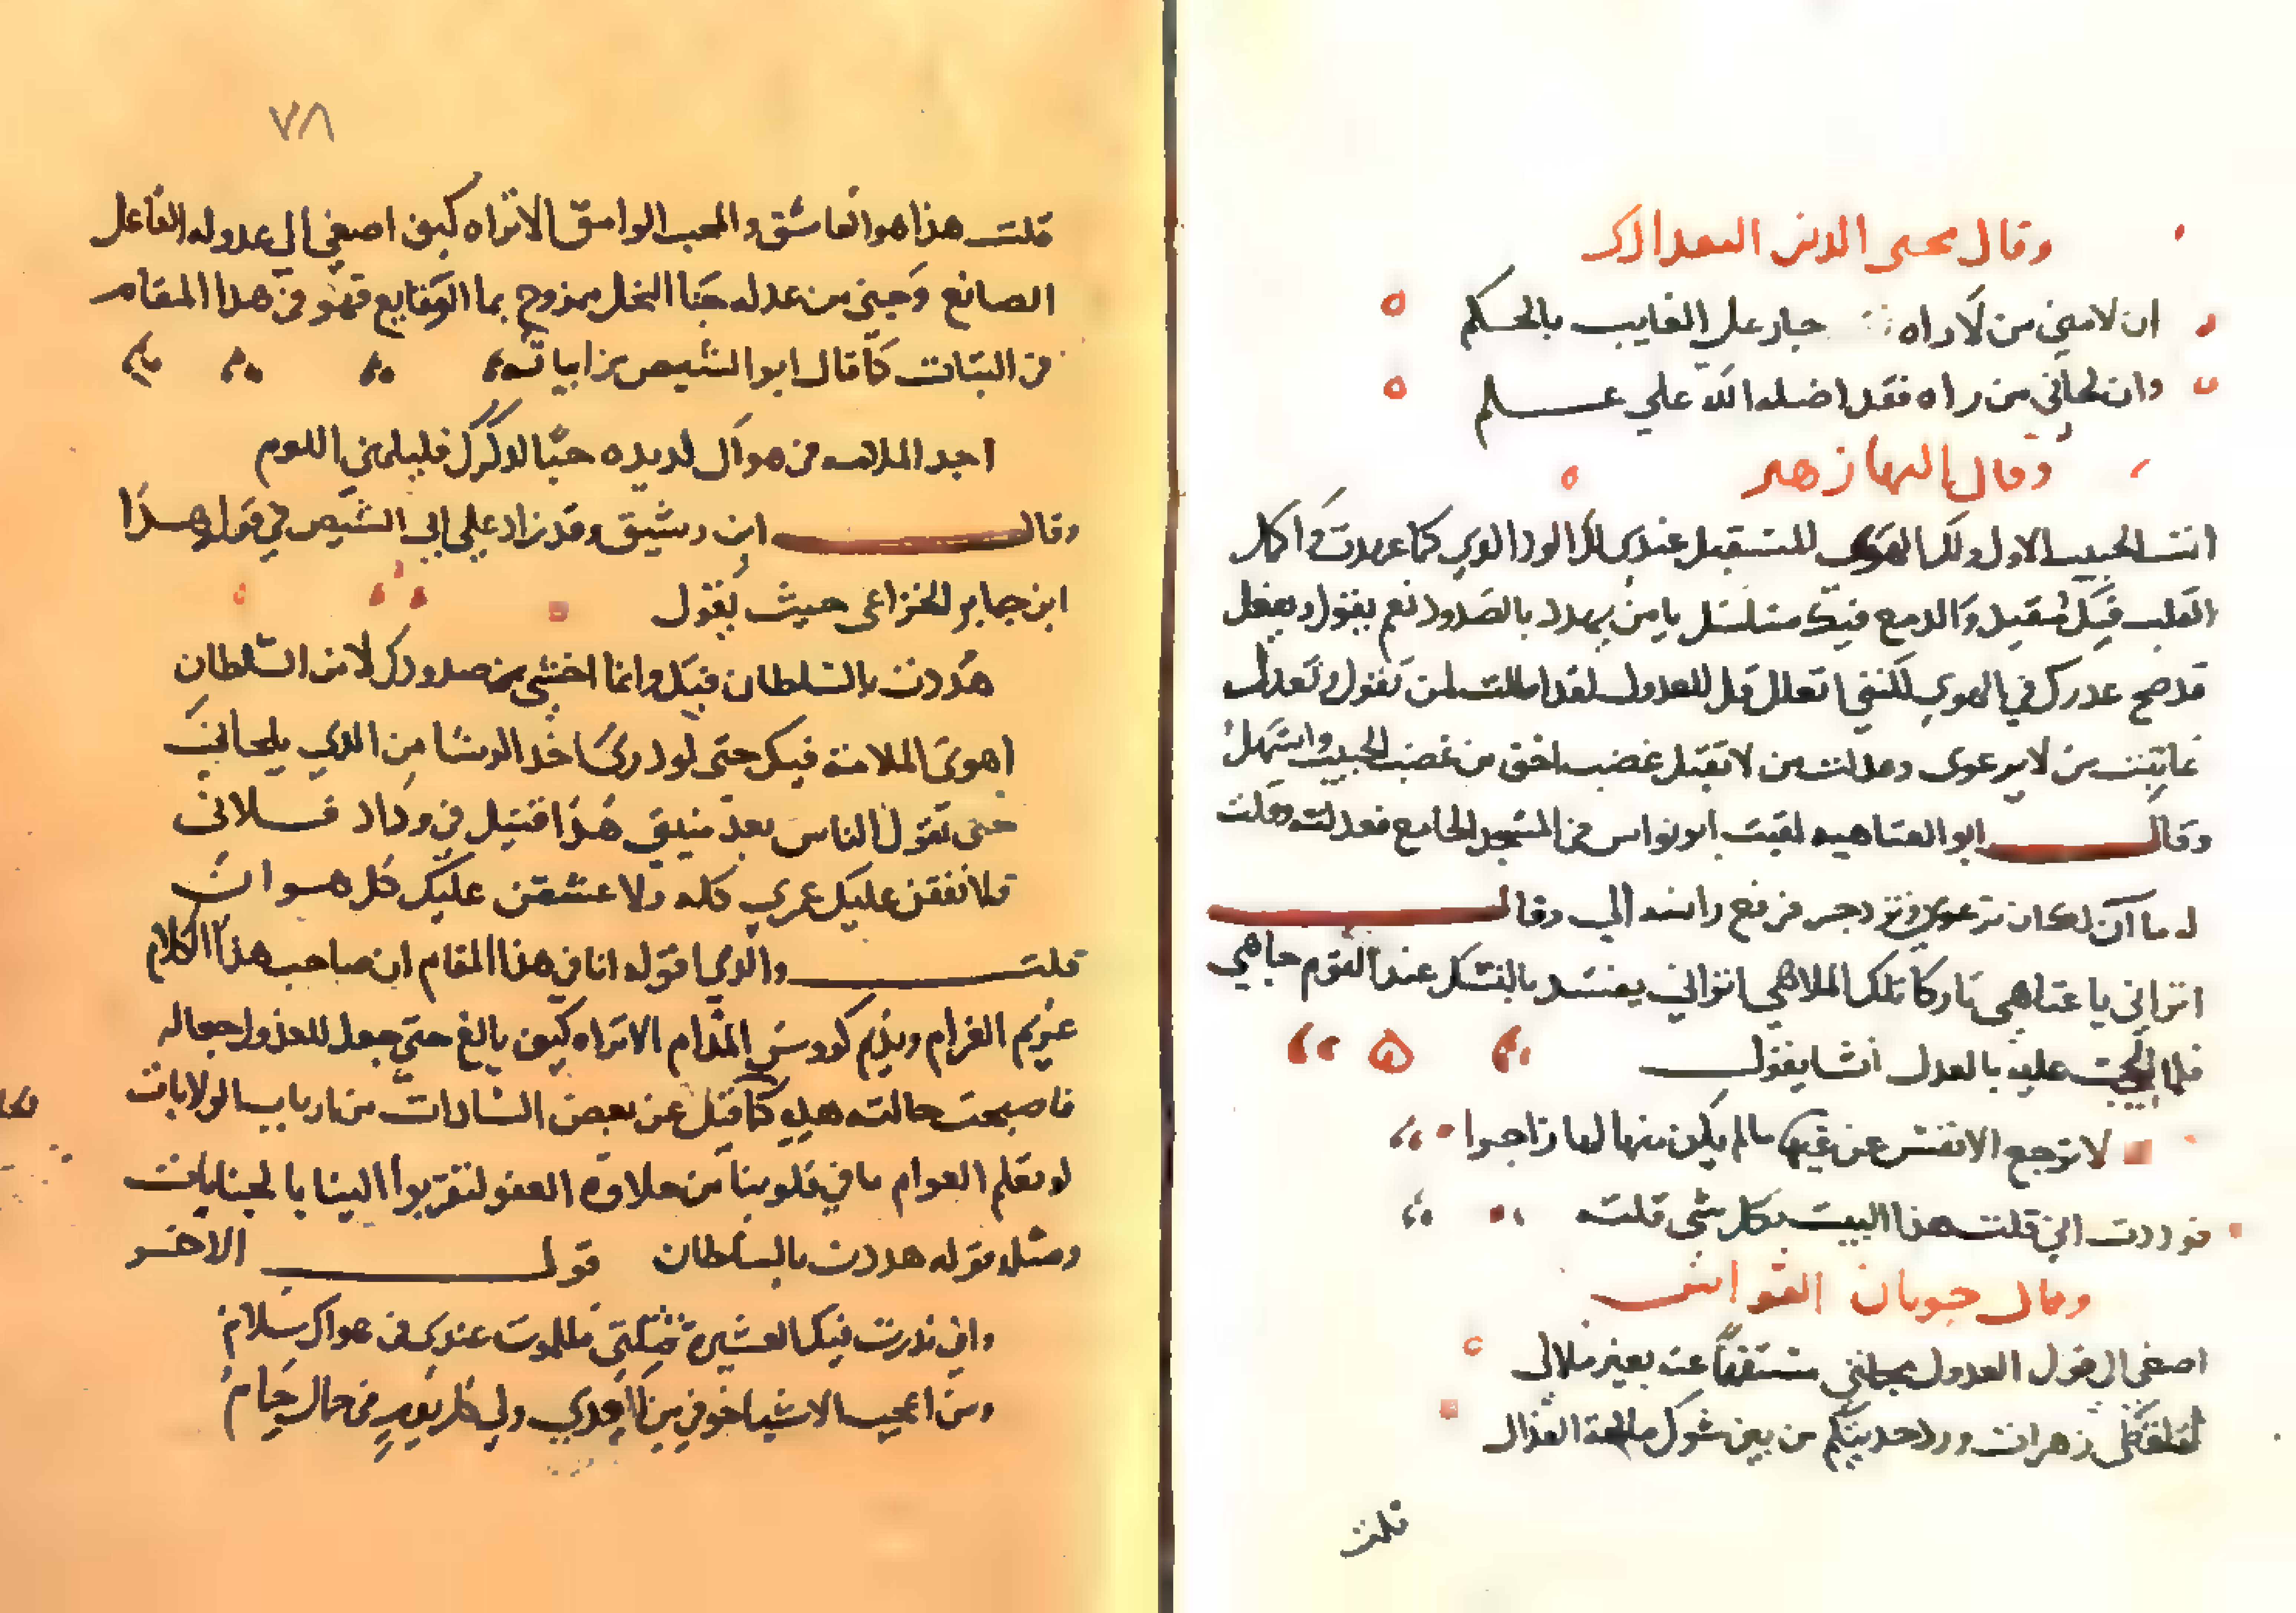 وقال محيى الدين البغدادى
ان لامني من لا راه جار على الغايب بالحكم
وان لحاني من راه فقد اضله الله علي علم
وقال البها زهير
انت الحبيب الاول ولك الهوى المستقبل عندي لك الود الذي كما عهدت واكمل
القلب فيك مقيد والدمع فيك متسلسل يا من يهدد بالصدود نعم يقول ويفعل
قد صح عدرك في الهوى لكنني اتعلل قل للعدول لقد اطلت لمن تقول وتعدل
عاتبت من لا يرعوى وعدلت من لا يقبل غضب اخق من غضب الحبيب واسهل
وقال ابو العتاهيه لقيت ابو نواس في المسجد الجامع فعدلته وقلت
له ما آن لك ان ترعوي وتزدجر فرفع راسه الي وقال
اتراني يا عتاهي تاركا تلك الملاهي اتراني يفسد بالنسك عند القوم جاهي
فلما الححت عليه بالعدل انشا يقول
لا ترجع الانفس عن غيها مالم يكن منها لها زاجرا
فوددت اني قلت هذا البيت بكل شى قلته
وقال جوبان القواس
اصغى الى قول العدول بجملتي مستفهما عنه بغير ملال
لتلقطي زهرات ورد حديثكم من بين شوك ملامة العذال
قلت
٧٨
قلت هذا هو العاشق والمحب الوامق الا تراه كيف اصغى الى عدوله الفاعل
الصانع وجنى من عدله جنا النحل ممزوج بما الوقايع فهو في هذا المقام
في الثبات كما قال ابو الشيص من ابياته
اجد الملامه في هواك لديده حبا لدكرك فليلمني اللوم
وقال ابن رشيق وقد زاد علي ابي الشيص في قوله هذا
ابن جابر الخزاعى حيث يقول
هددت بالسلطان فيك وانما اخشى من صدودك لا من السلطان
اهوى الملامة فيك حتى لو درى اخد الرشا من الذي يلحاني
حتى تقول الناس بعد منيتي هذا قتيل في وداد فلانى
فلا نفقن عليك عمري كله ولا عشقن عليك كل هوان
قلت والذي اقوله انا في هذا المقام ان صاحب هذا الكلام
غريم الغرام ونديم كووس المدام الا تراه كيف بالغ حتي جعل للعذول جعاله
فاصبحت حالته هذه كما قيل عن بعض السادات من ارباب الولايات
لو تعلم العوام ما في قلوبنا من حلاوة العفو لتقربوا الينا بالجنايات
ومثله قوله هددت بالسلطان قول الاخر
واني نذرت فيك العشيرة فتكتي فللموت عندي في هواك سلام
ومن اعجب الاشيا خوفي من العدي ولي كل يوم في حمال حمام